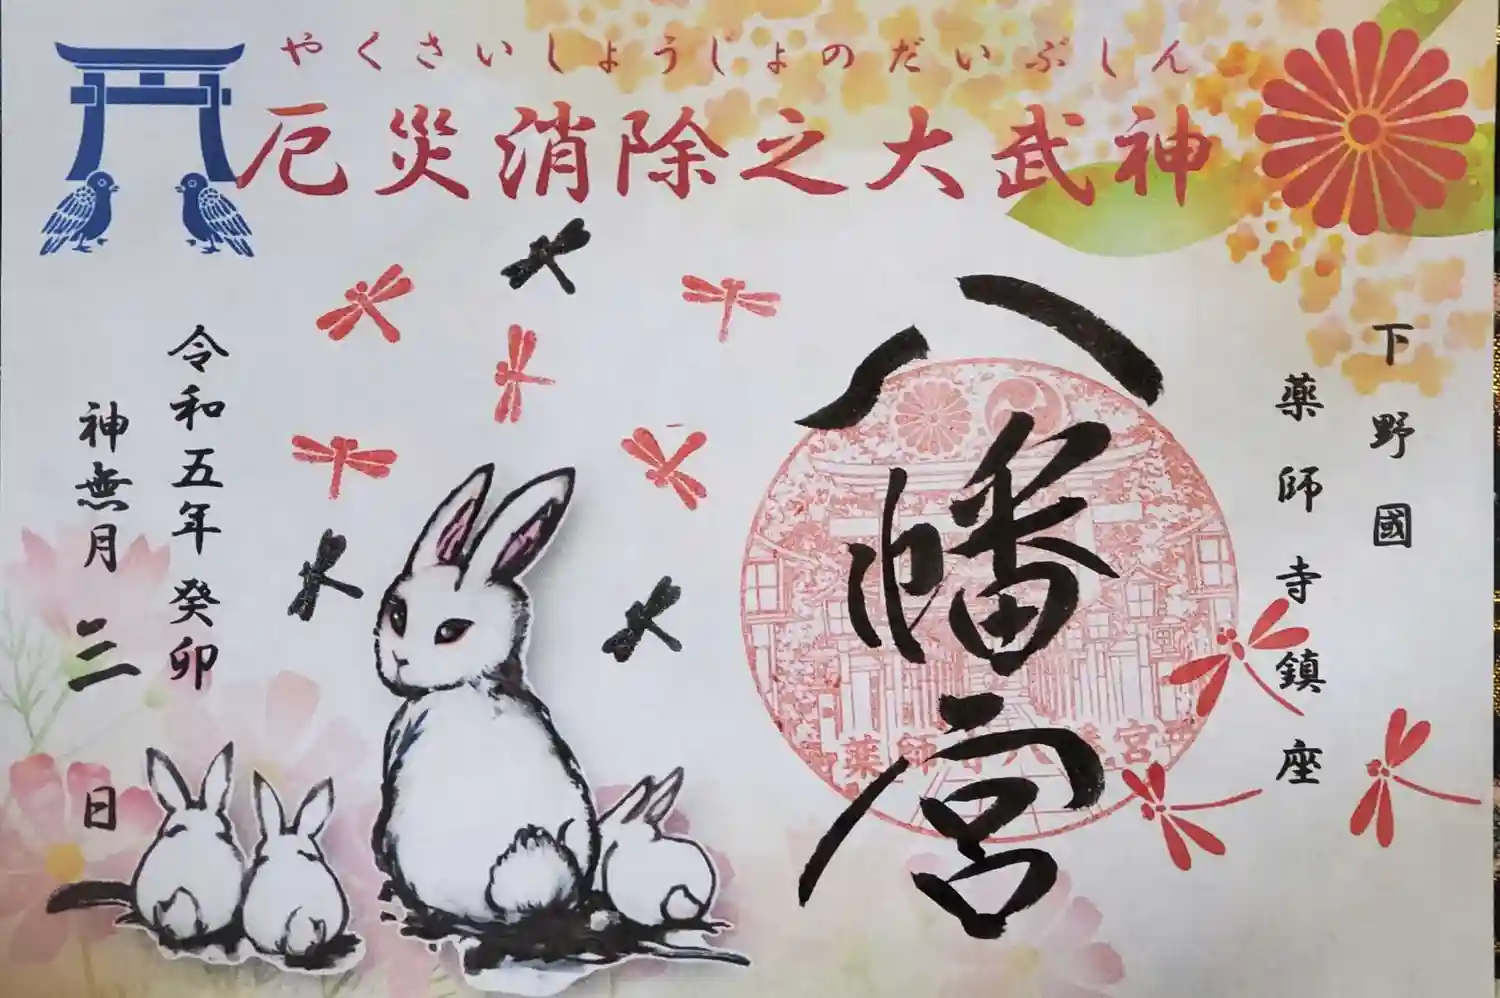 やくさいしょうじょのだいぶしん
厄災消除之大武神
下野國
薬師寺鎮座
八幡宮
薬師寺八幡宮
令和五年癸卯
神無月三日